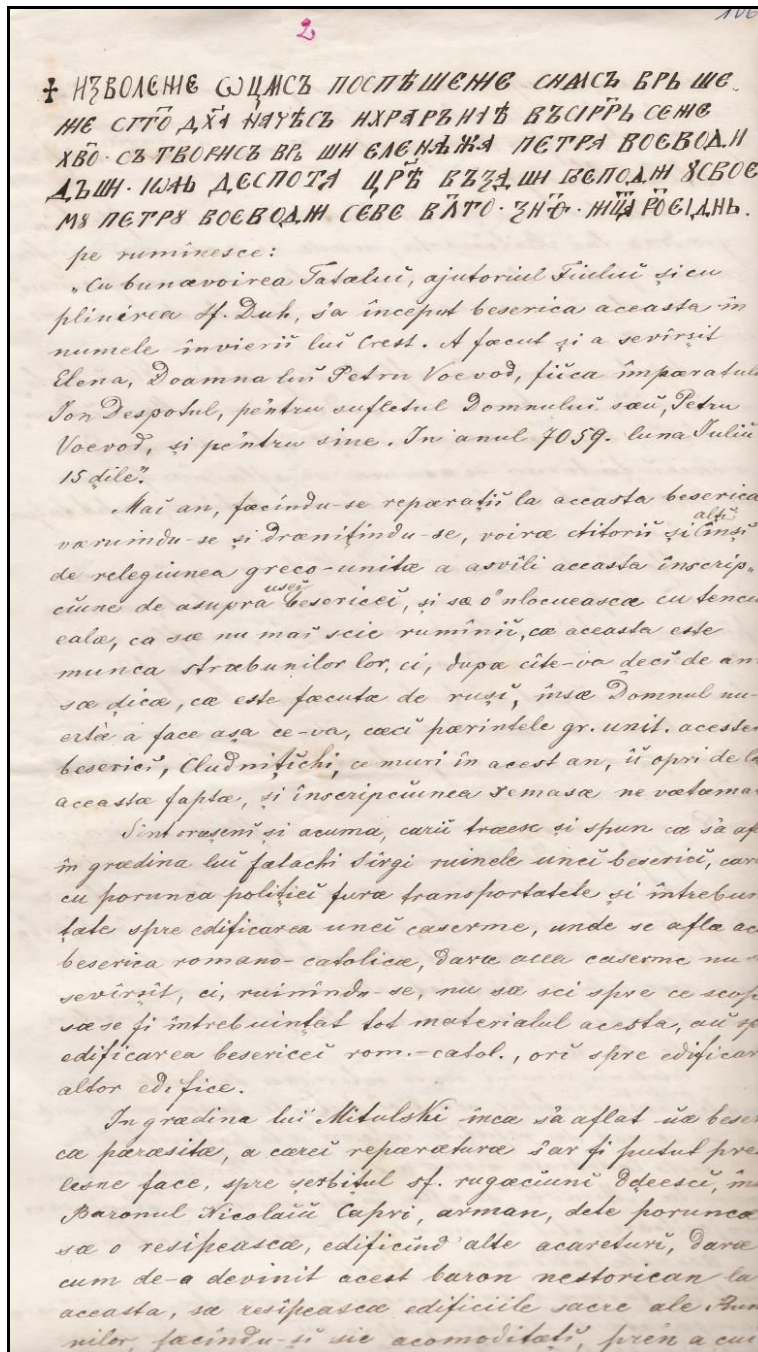 2
106
✝ ИꙀВОЛЕНІЕ ѾЦМСЪ ПОСПѢШЕНІЕ СНМСЪ ВРЬ ШЕ
НІЕ
ХВО·СЪ ТВОРИСЪ ВРЬ ШИ ЕЛЕНѢЖА ПЕТРА ВОЕВОДИ
ДЪШИ·ІѠАНЬ ДЕСПОТА ЦРѢ
МУ ПЕТРУ ВОЕВОДИ СЕБЕ
pe rumînesce:
„Cu bunævoirea Tatælui, ajutoriul Fiiului și cu
plinirea sf. Duh, s'a început beserica aceasta în
numele învierii lui Crest. A fæcut și a sevîrșit
Elena, Doamna lui Petru Voevod, fiica împæratul
Ion Despotul, pentru sufletul Domnului sæu, Petru
Voevod, și pentru sine. In anul 7059. luna Iuliu
15 dile."
Mai an, fæcîndu-se repæratiĭ la aceasta beserica
væruindu-se și dræniţindu-se, voiræ ctitorii și alți înși
de relegiunea greco-unitæ a asvîli aceasta înscrip„
ciune de asupra ușei besericeĭ, și sæ o' nlocueascæ cu tencu
ealæ, ca sæ nu mai scie rumîniĭ, cæ aceasta este
munca stræbunilor lor, ci, dupæ cîte-va deci de an
sæ dicæ, cæ este fæcutæ de rușĭ, însæ Domnul nu
ertà a face așa ce-va, cæci pærintele gr. unit. acestei
besericĭ, Cludnițichi, ce muri în acest an, iĭ opri de la
aceastæ faptæ, și înscripciunea remasæ nevætæma
Sînt orașeni și acuma, carii træesc și spun ca s'a af
în grædina lui falachi Sîrgi ruinele unei besericĭ, car
cu porunca politiei furæ transportatele și întrebuin
țate spre edificarea unei caserme, unde se aflæ ac
beserica romano-catolicæ, daræ acea caserme nu s
sevîrșit, ci, ruinîndu-se, nu sæ sci spre ce scop
sæ se fi întrebuințat tot materialul acesta, aŭ sp
edificarea besericeĭ rom.-catol., ori spre edificar
altor edifice.
In grædina lui Mitulski încæ s'a aflat uæ beser
cæ pæræsitæ, a careĭ repæraturæ s'ar fi putut pre
lesne face, spre șerbițul sf. rugæciunĭ în
Baronul Nicolaiŭ Capri, arman, dete poruncæ
sæ o resipeascæ, edificînd alte acareturĭ, daræ
cum de-a devinit acest baron nestorican la
aceasta, sæ resipeascæ edificiile sacre ale Rum
nilor, fæcîndu-șĭ sie acomoditățĭ, prĕn a cui